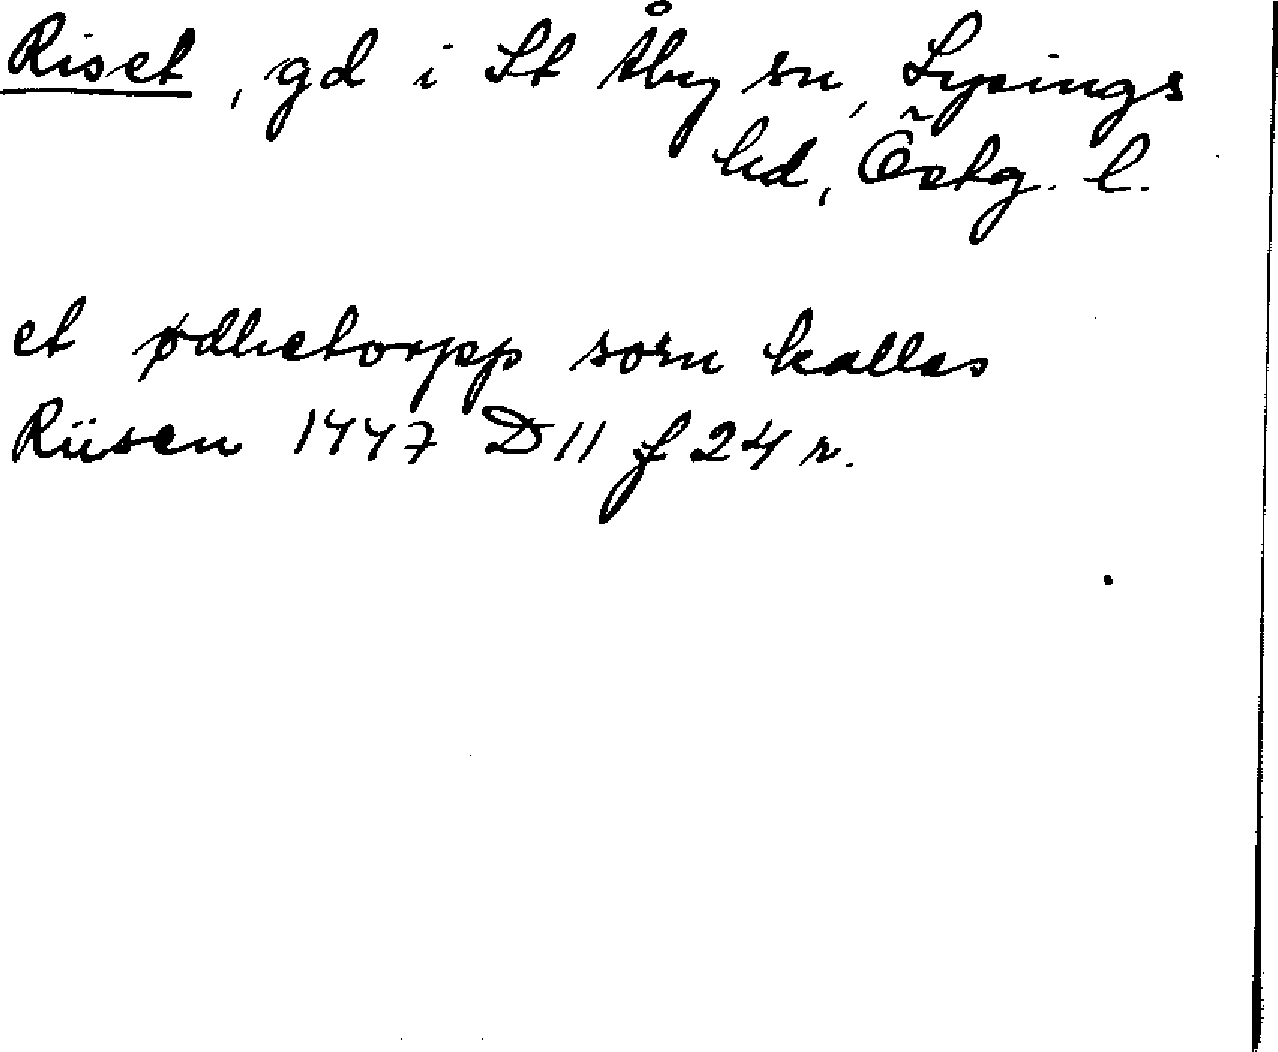 Riset, gd i St Åby sn, Lysings
hd, Östg. l.
et ødhetorpp som kallas
Riisen 1447 D11 f 24 r.